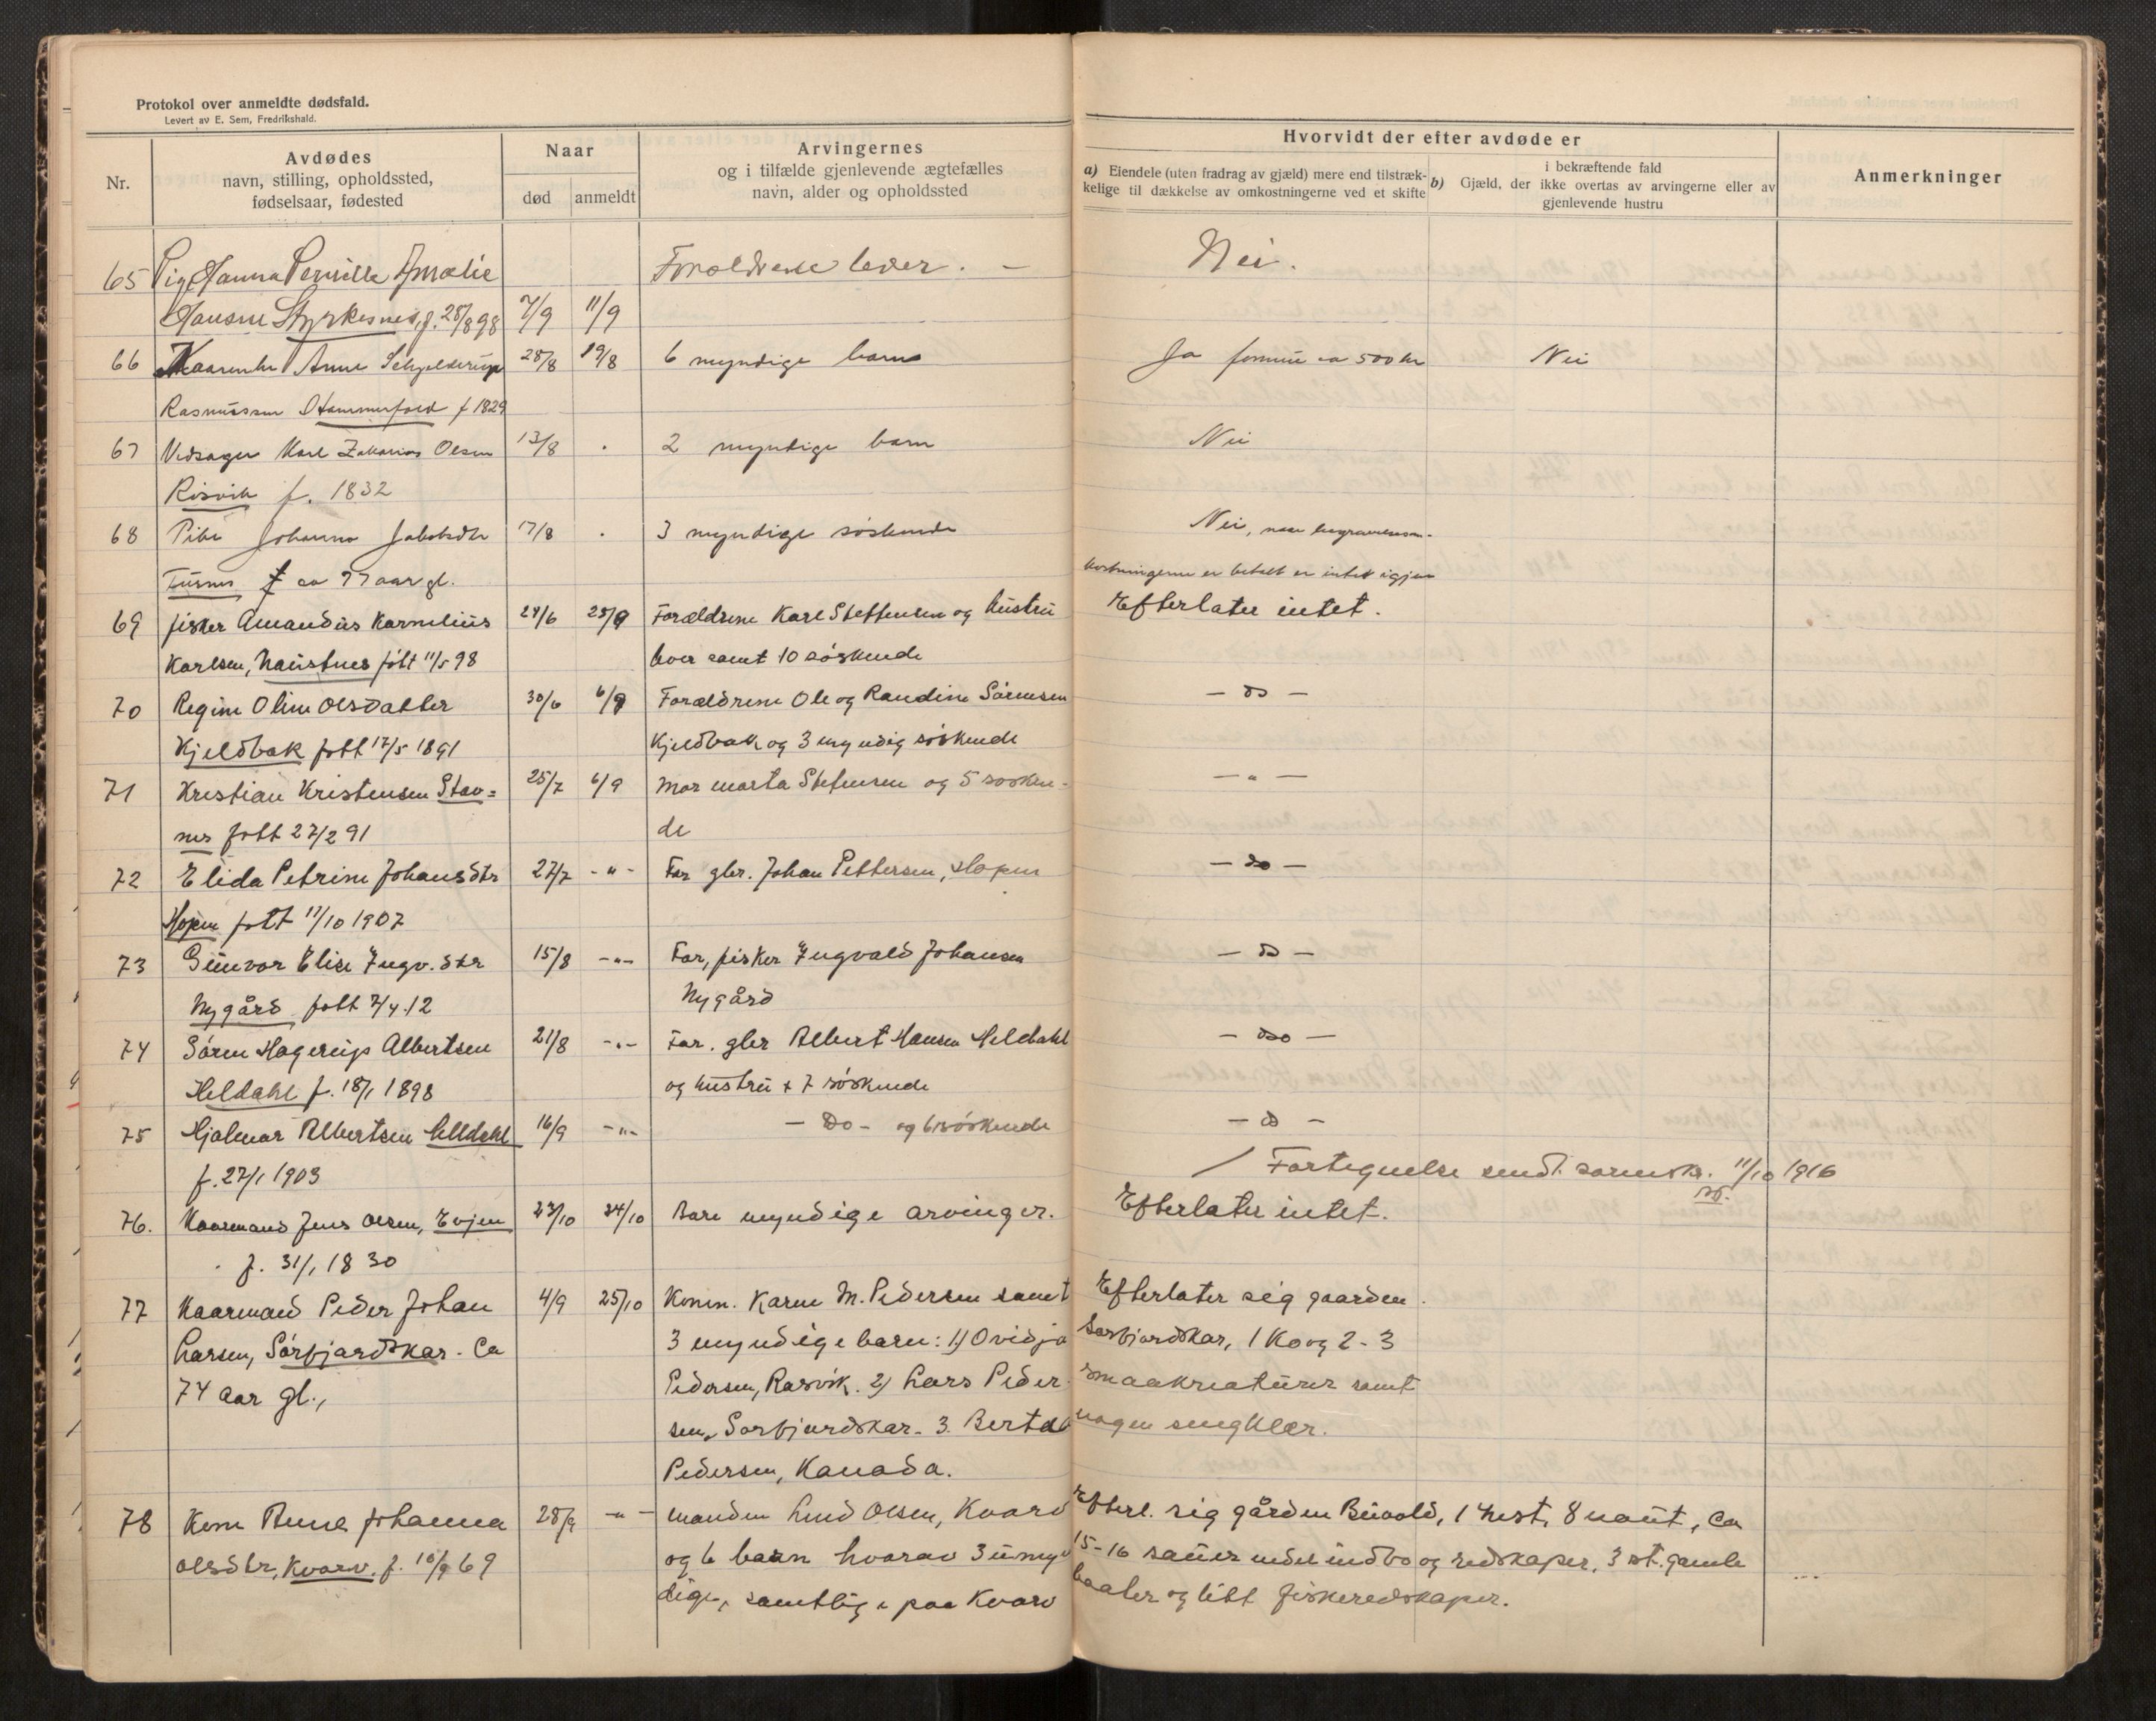 Protokol over anmeldte dødsfald.
Levert av E. Sem, Fredrikshald.
Nr.
Avdødes
navn, stilling, opholdssted,
fødselsaar, fødested
Naar
død
anmeldt
Arvingernes
og i tilfælde gjenlevende ægtefælles
navn, alder og opholdssted
Hvorvidt der efter avdøde er
a) Eiendele (uten fradrag av gjæld) mere end tilstræk-
kelige til dækkelse av omkostningerne ved et skifte
i bekræftende fald
b) Gjæld, der ikke overtas av arvingerne eller av
gjenlevende hustru
Anmerkninger
65 Pige Hanna Pernille Amalie Forældrene lever. - Nei.
Hansen Styrkesnes, f. 28/8 98 7/9 11/9
66 Kaarenke Anne Schjelderup 28/8 19/8 6 myndige barn Ja formue ca 500 kr Nei
Rasmussen Hammerfald f 1829
67 Vedsager Karl Zakarias Olsen 13/8 . 2 myndige barn Nei
Risvik f. 1832
68 Pike Johanna Jakobsdtr 17/8 . 3 myndige søskende Nei, naar begravelsesom-
Tusnes ca 77 aar gl. kostningerne er betalt er intet igjen
69 fisker Amandus Kornelius 24/6 25/9 Forældrene Karl Steffensen og hustru Efterlater intet.
Karlsen, Naustnes født 11/5 98 lever samt 10 søskende
70 Regine Oline Olsdatter 30/6 6/9 Forældrene Ole og Randine Sørensen - do -
Kjeldbak født 17/5 1891 Kjeldbak og 3 myndig søskende
71 Kristian Kristensen Stav= 25/7 6/9 Mor Marta Stefensen og 5 søsken- - " -
nes født 27/2 91 de
72 Elida Petrine Johansdtr 27/7 - " - Far gbr. Johan Pettersen, Hopen - do -
Hopen født 11/10 1907
73 Gunvor Elise Ingv. dtr 15/8 - " - Far, fisker Ingvald Johansen - do -
Nygård født 7/4 12 Nygård
74 Søren Hagerup Albertsen 21/8 - " - Far. gbr Albert Hansen Heldahl - do -
Heldahl f. 18/1 1898 og hustru + 7 søskende
75 Hjalmar Albertsen Helldahl 16/9 - " - - Do - og 6 søskende - do -
f. 27/1 1903 / Fortegnelse sendt sorensk. 11/10 1916
76. Kaarmand Jens Olsen, Evjen 23/10 24/10 Bare myndige arvinger. Efterlater intet.
f. 31/1 1830
77 Kaarmand Peder Johan 4/9 25/10 Konen. Karen M. Pedersen samt Efterlater sig gaarden
Larsen, Sørfjordskar. Ca 3 myndige barn: 1) Ovidja Sørfjordskar, 1 Ko og 2-3
74 aar gl., Pedersen, Rasvik. 2) Lars Peder- smaakreaturer samt
sen, Sørfjordskar. 3. Berta nogen sengklær.
Pedersen, Kanada.
78 Kone Anna Johanna 28/9 - " - manden Lind Olsen, Kvarv Efterl. sig gården Buvold, 1 hest, 8 naut, Ca
Olsdtr, Kvarv. f. 10/9 69 og 6 barn hvorav 3 umyn 15-16 sauer indbo og redskaper, 3 st. gamle
dige, samtlige paa Kvarv baater og litt fiskeredskaper.